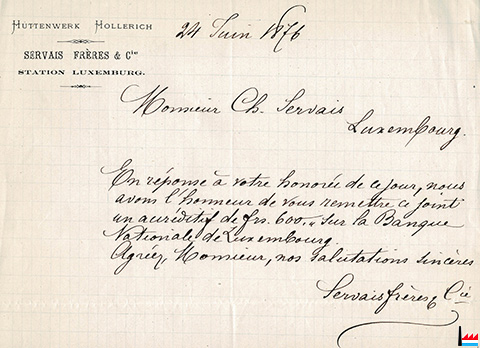 HÜTTENWERK HOLLERICH
SERVAIS FRÈRES & Cie
STATION LUXEMBURG.
24 Juin 1876
Monsieur Ch. Servais
Luxembourg.
En réponse à votre honorée de ce jour, nous
avons l'honneur de vous remettre ci joint
un accréditif de frs. 600.„ sur la Banque
Nationale de Luxembourg.
Agreez, Monsieur, nos salutations sincères
Servais frères & Cie